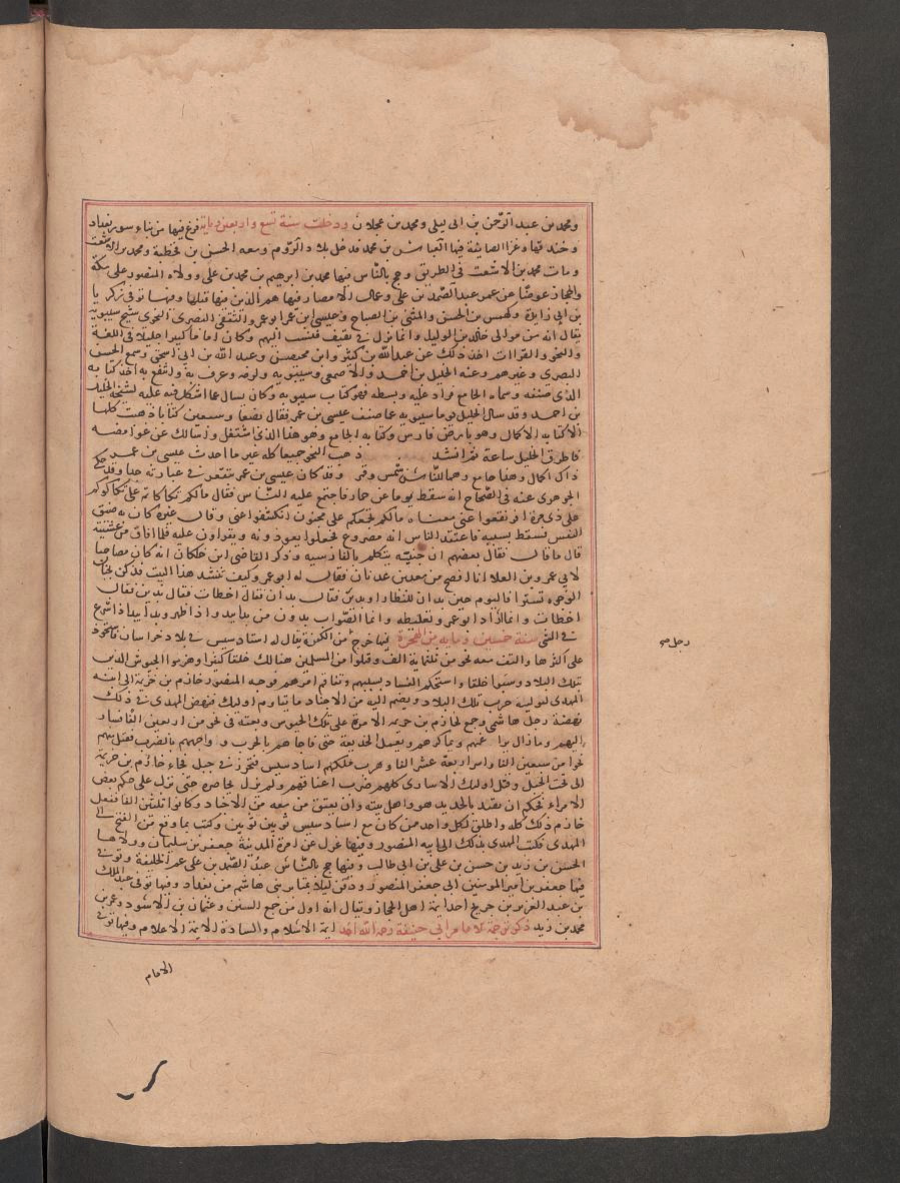 ومحمد بن عبد الرحمن بن ابى ليلى ومحمد بن عجلان ودخلت سنة تسع واربعين ومايه فرغ فيها من بناء سور بغداد
وخندقها وغزا الصائفة فيها العباس بن محمد فدخل بلاد الروم ومعه الحسن بن قحطبة ومحمد بن الاشعث
ومات محمد بن الاشعث فى الطريق وحج بالناس فيها محمد بن ابرهيم بن محمد بن على وولاه المنصور على مكة
والحجاز عوضا عن عمه عبد الصمد بن على وعمال الامصار فيها هم الذين فيما قبلها وفيها توفى زكريا
بن ابى زايدة وكهمس بن الحسن والمثنى بن الصباح وعيسى ابن عمر ابو عمرو الثقفى البصرى النحوى شيخ سيبويه
يقال انه من موالى خالد بن الوليد وانما نزل فى ثقيف فنسب اليهم وكان اماما كبيرا جليلا فى اللغة
والنحو والقراات اخذ ذلك عن عبد الله بن كثير وابن محيصن وعبد الله بن ابى اسحق وسمع الحسن
البصرى وغيرهم وعنه الخليل بن احمد والاصمعى وسيبويه ولزمه وعرف به وانتفع به اخذ كتابه
الذى صنفه وسماه الجامع فزاد عليه وبسطه فهو كتاب سيبويه وكان يسال عما اشكل فيه عليه لشيخه الخليل
بن احمد وقد سال الخليل يوما سيبويه عما صنف عيسى بن عمر فقال بضعا وسبعين كتابا ذهبت كلها
الا كتابه الاكمال وهو بارض فارس وكتابه الجامع وهو هذا الذى اشتغل واسالك عن غوامضه
فاطرق الخليل ساعة ثم انشد ذهب النحو جميعا كله غير ما احدث عيسى بن عمر
ذاك اكمال وهذا جامع وهما للناس شمس وقمر وقد كان عيسى بن عمر يتقعر فى عبارته جدا وقد حكى
الجوهرى عنه فى الصحاح انه سقط يوما عن حمار فاجتمع عليه الناس فقال مالكم تكاكاتم على تكاكوكم
على ذى مرة افرنقعوا عنى معناه مالكم تجمعتم على تجمعكم على مجنون انكشفوا عنى وقال غيره كان به ضيق
النفس فسقط بسببه فاعتقد الناس انه مصروع فجعلوا يعوذونه ويقراون عليه فلما افاق من غشيته
قال ما قال فقال بعضهم ان جنيته يتكلم بالفارسيه وذكر القاضى ابن خلكان انه كان صاحبا
لابى عمرو بن العلا انا افصح من معد بن عدنان فقال له ابو عمرو كيف تنشد هذا البيت قد كن يخبان
الوجوه تسترا فاليوم حين بدان للنظار او بدين فقال بدان فقال اخطات فقال بدين فقال
اخطات وانما اراد ابو عمرو تغليطه وانما الصواب بدون من بدا يبدو اذا ظهر وبدا يبدا اذا شرع
فى الشى سنة خمسين ومايه من الهجرة فيها خرج من الكفرة يقال له استاد سيس فى بلاد خراسان فاستحوذ
رجل صح
على اكثرها والتف معه نحو من ثلثماية الف وقتلوا من المسلمين هنالك خلقا كثيرا وهزموا الجيوش الذين
بتلك البلاد وسبوا خلقا واستحكم الفساد بسببهم وتفاقم امرهم فوجه المنصور خازم بن خزيمة الى ابنه
المهدى ليوليه حرب تلك البلاد ويضم اليه من الاجناد ما يقاوم اوليك فنهض المهدى فى ذلك
نهضة رجل هاشمى وجمع لخازم بن خزيمة الامرة على تلك الجيوش وبعثه فى نحو من اربعين الفا فسار
اليهم وما زال يراوغهم ويماكرهم ويعمل الخديعة حتى فاجاهم بالحرب وواجههم بالضرب فقتل منهم
نحوا من سبعين الفا واسر اربعة عشر الفا وهرب ملكهم استاد سيس فتحرز فى جبل فجاء خازم بن خزيمة
الى تحت الجبل وقتل اوليك الاسارى كلهم ضرب اعناقهم ولم يزل يحاصره حتى نزل على حكم بعض
الامراء فحكم ان يقيد بالحديد هو واهل بيته وان يعتق من معه من الاجناد وكانوا ثلثين الفا ففعل
خازم ذلك كله واطلق لكل واحد ممن كان مع استاد سيس ثوبين ثوبين وكتب بما وقع من الفتح الى
المهدى فكتب المهدى بذلك الى ابيه المنصور وفيها عزل عن امرة المدينة جعفر بن سليمان وولاها
الحسن بن زيد بن حسن بن على بن ابى طالب وفيها حج بالناس عبد الصمد بن على عم الخليفة وتوفى
فيها جعفر بن امير المومنين ابى جعفر المنصور ودفن ليلا بمقابر بنى هاشم من بغداد وفيها توفى عبد الملك
بن عبد العزيز بن جريج احد ايمة اهل الحجاز ويقال انه اول من جمع السنن وعثمان بن الاسود وعمر بن
محمد بن زيد ذكر ترجمة الامام ابى حنيفة رحمه الله احد ايمة الاسلام والسادة الايمة الاعلام وفيها توفى
الامام